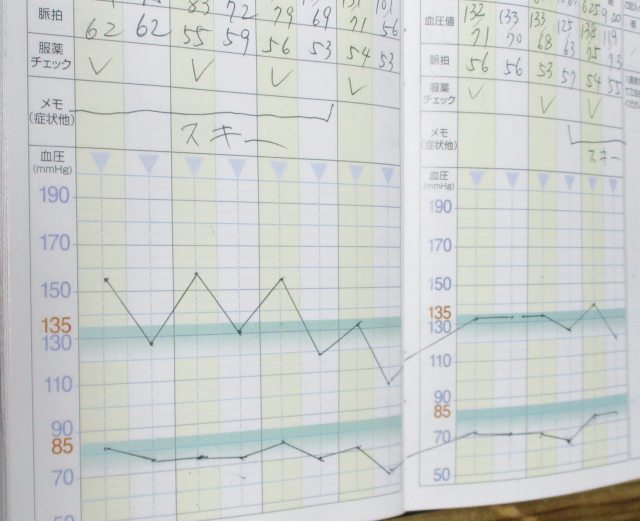 83 72 79 69 71 56
脈拍 62 62 55 59 56 53 54 53
服薬
チェック ✓ ✓ ✓ ✓
メモ
(症状他)
スキー
血圧
(mmHg)
190
170
150
135
130
110
90
85
70
50
血圧値 132 133 133 125 138 119
71 70 68 63 75 73
脈拍 56 56 53 57 54 55
服薬
チェック ✓ ✓ ✓
メモ
(症状他)
スキー
血圧
(mmHg)
190
170
150
135
130
110
90
85
70
50